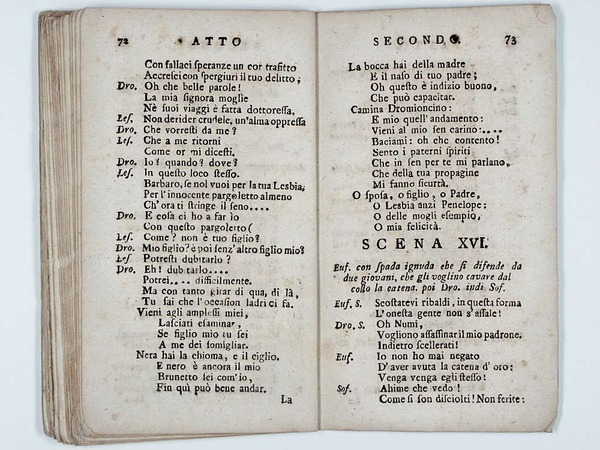 72 ATTO
Con fallaci speranze un cor trafitto
Accresci con spergiuri il tuo delitto;
Dro. Oh che belle parole!
La mia signora moglie
Nè suoi viaggi è fatta dottoressa.
Les. Non derider crudele, un'alma oppressa
Dro. Che vorresti da me?
Les. Che a me ritorni
Come or mi dicesti.
Dro. Io? quando? dove?
Les. In questo loco stesso.
Barbaro, se nol vuoi per la tua Lesbia,
Per l'innocente pargoletto almeno
Ch'ora ti stringe il seno....
Dro. E cosa ci ho a far io
Con questo pargoletto?
Les. Come? non è tuo figlio?
Dro. Mio figlio? è poi senz'altro figlio mio?
Les. Potresti dubitarlo?
Dro. Eh! dubitarlo....
Potrei.... difficilmente.
Ma con tanto girar di qua, di là,
Tu sai che l'occasion ladri ci fa.
Vieni agli amplessi miei,
Lasciati esaminar,
Se figlio mio tu sei
A me dei somigliar.
Nera hai la chioma, e il ciglio.
E nero è ancora il mio
Brunetto sei com'io,
Fin quì può bene andar.
La
SECONDO. 73
La bocca hai della madre
E il naso di tuo padre;
Oh questo è indizio buono,
Che può capacitar.
Camina Dromioncino:
E mio quell'andamento:
Vieni al mio sen carino:....
Baciami: oh che contento!
Sento i paterni spiriti
Che in sen per te mi parlano,
Che della tua propagine
Mi fanno sicurtà.
O sposa, o figlio, o Padre,
O Lesbia anzi Penelope:
O delle mogli esempio,
O mia felicità.
SCENA XVI.
Euf. con spada ignuda che si difende da
due giovani, che gli voglino cavare dal
collo la catena. poi Dro. indi Sof.
Euf. S. Scostatevi ribaldi, in questa forma
L'onesta gente non s'assale!
Dro. S. Oh Numi,
Vogliono assassinar il mio padrone.
Indietro scellerati!
Euf. Io non ho mai negato
D'aver avuta la catena d'oro:
Venga venga egli stesso!
Sof. Ahime che vedo!
Come si son disciolti! Non ferite: